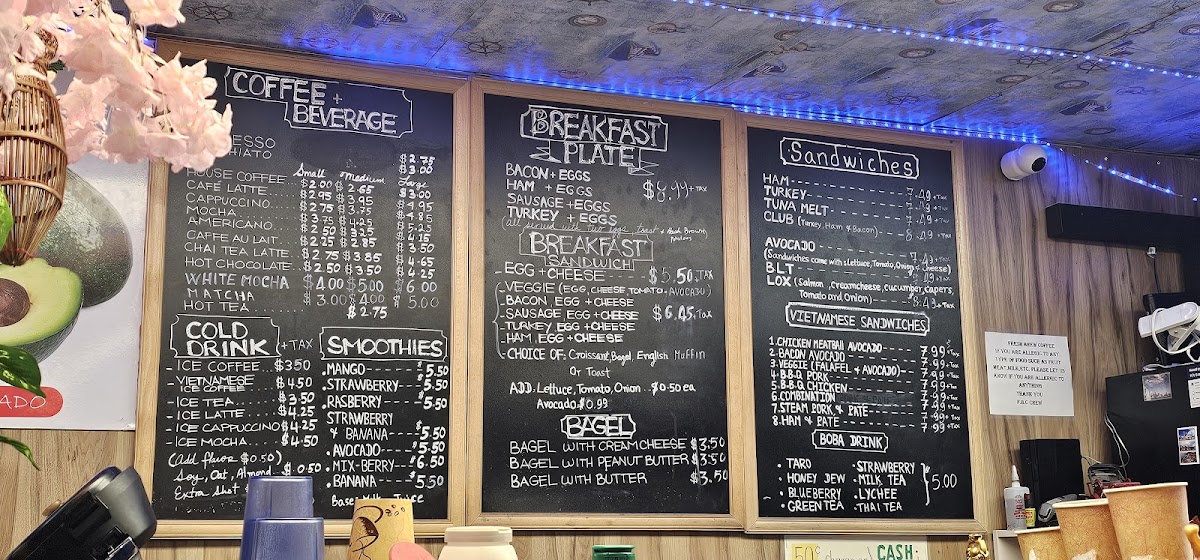 COFFEE + BEVERAGE
ESSO $2.75
HIATO $3.00
Small Medium Large
HOUSE COFFEE $2.00 $2.65 $3.00
CAFÉ LATTE $2.95 $3.95 $4.95
CAPPUCCINO
MOCHA
AMERICANO
CAFFE AU LAIT
CHAI TEA LATTE $2.75 $3.85
HOT CHOCOLATE $2.50 $3.50 $4.25
WHITE MOCHA $4.00 $5.00 $6.00
MATCHA $3.00 $4.00 $5.00
HOT TEA $2.75
COLD DRINK + TAX
-ICE COFFEE $3.50
-VIETNAMESE ICE COFFEE $4.50
-ICE TEA $3.50
-ICE LATTE $4.25
-ICE CAPPUCCINO $4.25
-ICE MOCHA $4.50
(Add flavor $0.50)
Soy, Oat, Almond $0.50
Extra Shot
SMOOTHIES
.MANGO $5.50
.STRAWBERRY $5.50
.RASBERRY $5.50
STRAWBERRY
& BANANA $5.50
.AVOCADO $5.50
.MIX-BERRY $6.50
.BANANA $5.50
Base Milk Juice
BREAKFAST PLATE
BACON + EGGS
HAM + EGGS $8.99 + TAX
SAUSAGE + EGGS
TURKEY + EGGS
all served with two eggs, toast & Hash Browns Potatoes
BREAKFAST SANDWICH
-EGG + CHEESE $5.50 + TAX
-VEGGIE (EGG, CHEESE TOMATO + AVOCADO)
-BACON, EGG + CHEESE
-SAUSAGE, EGG + CHEESE $6.45 + TAX
-TURKEY, EGG + CHEESE
-HAM, EGG + CHEESE
-CHOICE OF: Croissant, Bagel, English Muffin
Or Toast
ADD. Lettuce, Tomato, Onion $0.50 ea
Avocado $0.99
BAGEL
BAGEL WITH CREAM CHEESE $3.50
BAGEL WITH PEANUT BUTTER $3.50
BAGEL WITH BUTTER $3.50
Sandwiches
HAM 7.49 + TAX
TURKEY 7.49 + TAX
TUNA MELT 7.49 + TAX
CLUB (Turkey, Ham & Bacon) 8.49 + TAX
AVOCADO
(Sandwiches come with Lettuce, Tomato, Onion & Cheese)
BLT
LOX (Salmon, creamcheese, cucumber, capers,
Tomato and Onion) 8.43 + TAX
VIETNAMESE SANDWICHES
1.CHICKEN MEATBALL AVOCADO 7.99 + TAX
2.BACON AVOCADO 7.99 + TAX
3.VEGGIE (FALAFEL + AVOCADO) 7.99 + TAX
4.B.B.Q PORK 7.99 + TAX
5.B.B.Q CHICKEN 7.99 + TAX
6.COMBINATION 7.99 + TAX
7.STEAM PORK & PATE 7.99 + TAX
8.HAM & PATE 7.99 + TAX
BOBA DRINK
• TARO • STRAWBERRY
• HONEY JEW • MILK TEA $5.00
• BLUEBERRY • LYCHEE
• GREEN TEA • THAI TEA
FRESH BREW COFFEE
IF YOU ARE ALLERGIC TO ANY
TYPE OF FOOD SUCH AS FRUIT
MEAT, MILK, ETC. PLEASE LET US
KNOW IF YOU ARE ALLERGIC TO
ANYTHING
THANK YOU
ADO
50¢
CASH